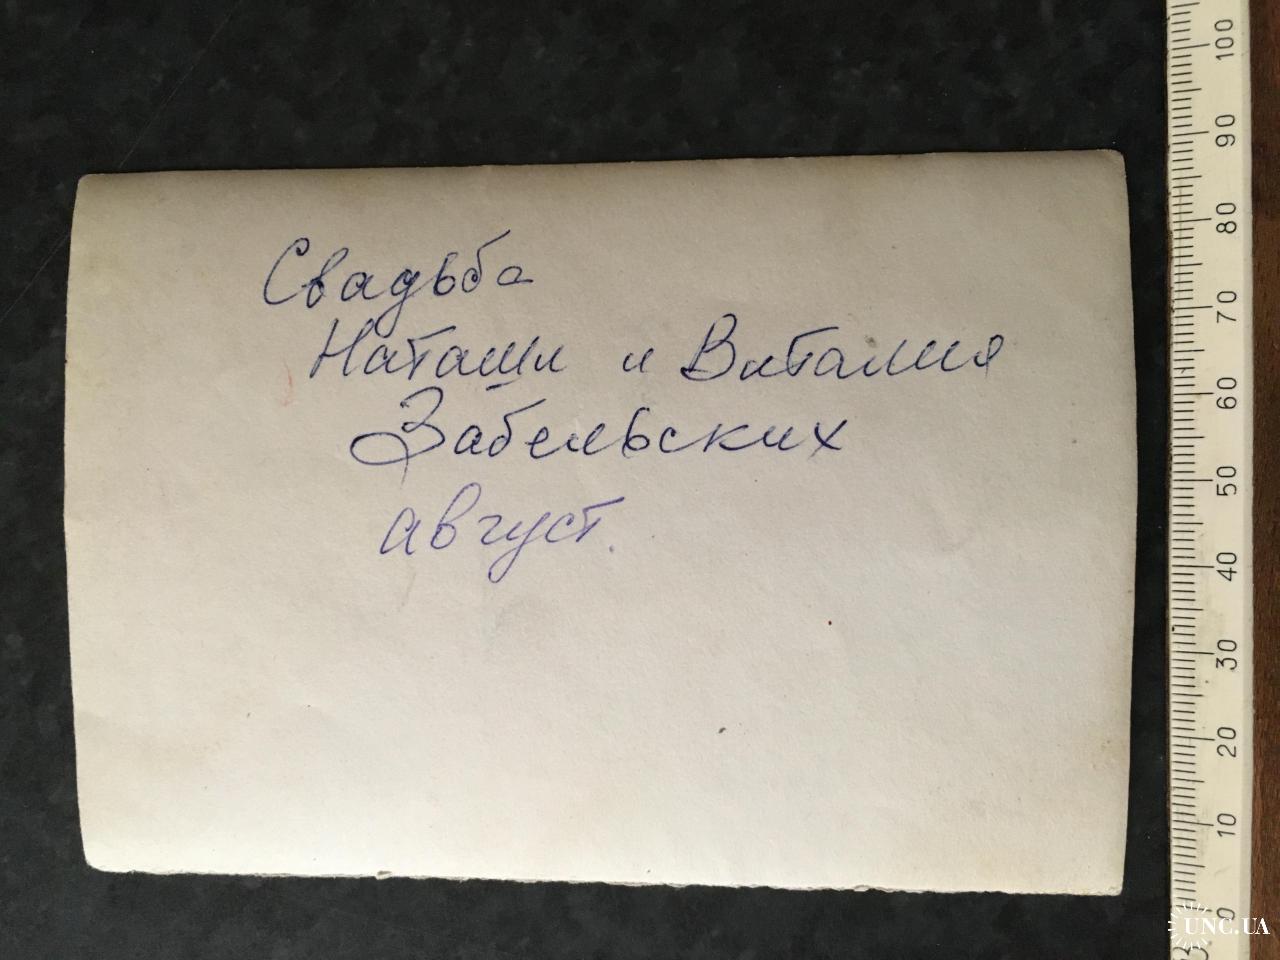 Свадьба
Наташи и Виталия
Забельских
август.
100
90
80
70
60
50
40
30
20
10
0
UNC.UA